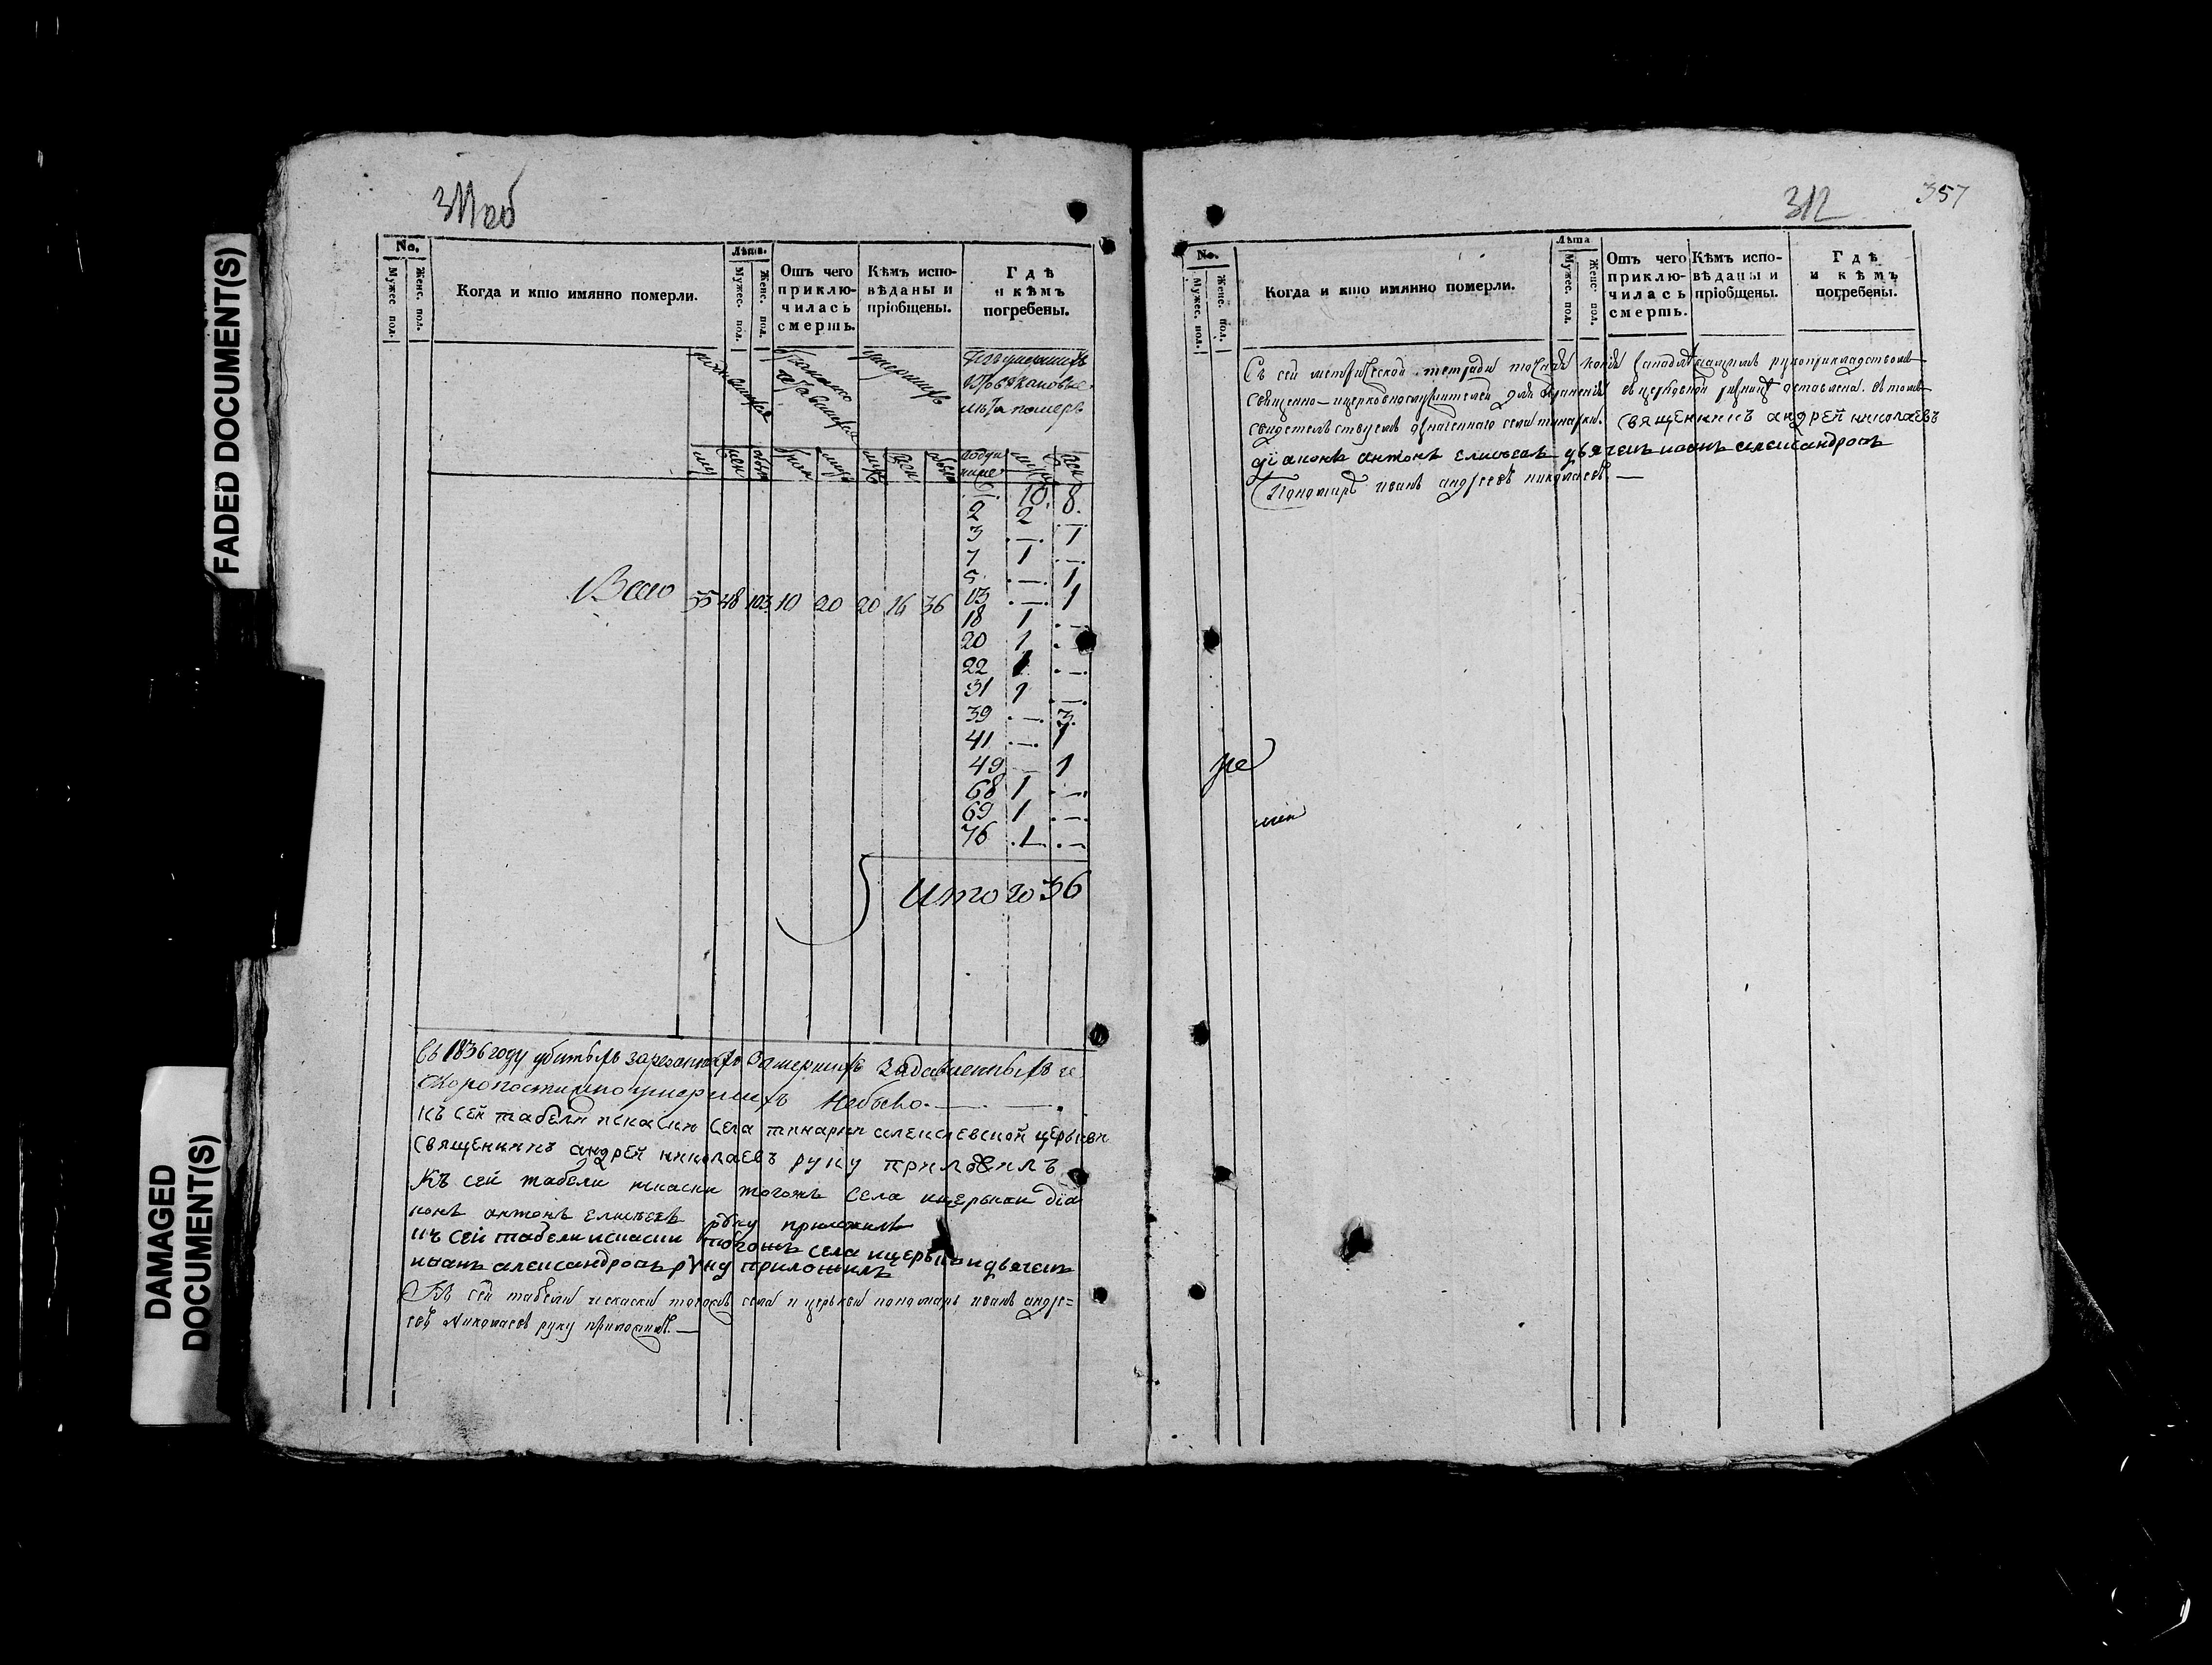 FADED DOCUMENT(S)
DAMAGED
DOCUMENT(S)
311 об
No.
Мужес. пол.
Женс. пол.
Когда и кто имянно померли.
Лѣта.
Мужес. пол.
Женс. пол.
Отъ чего
приклю-
чилась
смерть.
Кѣмъ испо-
вѣданы и
пріобщены.
Гдѣ
и кѣмъ
погребены.
умершихъ
10. 8.
2 2 .—
3 .—. 1
7 1 .—
5. .—. 1
13 .—. 1
18 1 .—
20 1 .
22 1 .—.
31 1 .—.
39 .—. 3.
41 .—. 1
49 — 1
68 1 .—.
69 1 .—.
76 .1 .—
Всего 55 48 103 10 20 20 16 36
Итого 36
Въ 1836 году убитыхъ зарезанныхъ замершихъ задавленныхъ и
скоропостижно умершихъ небыло.—.—.
къ сей табели и села алексіевской церкви
священникъ андрей николаевъ руку приложилъ
Къ сей табели тогожъ села ицеркви діа
конъ антонъ елисеевъ руку приложилъ
къ сей табели тогожъ села ицеркви дьячекъ
иоанъ александровъ руку приложилъ
Къ сей табели тогожъ села и церкви пономарь иванъ андре=
евъ Николаевъ руку приложилъ.—
312
357
No.
Мужес. пол.
Женс. пол.
Когда и кто имянно померли.
Лѣта
Мужес. пол.
Женс. пол.
Отъ чего
приклю-
чилась
смерть.
Кѣмъ испо-
вѣданы и
пріобщены.
Гдѣ
и кѣмъ
погребены.
Съ сей метрической тетради точная копія рукоприкладствомъ
священно-ицерковнослужителей для храненія въ церковной ризнице оставлена. въ томъ
свидетельствуемъ означеннаго села священникъ андрей николаевъ
діаконъ антонъ елисеевъ дьячекъ иоанъ александровъ
Пономарь иванъ андреевъ николаевъ.—